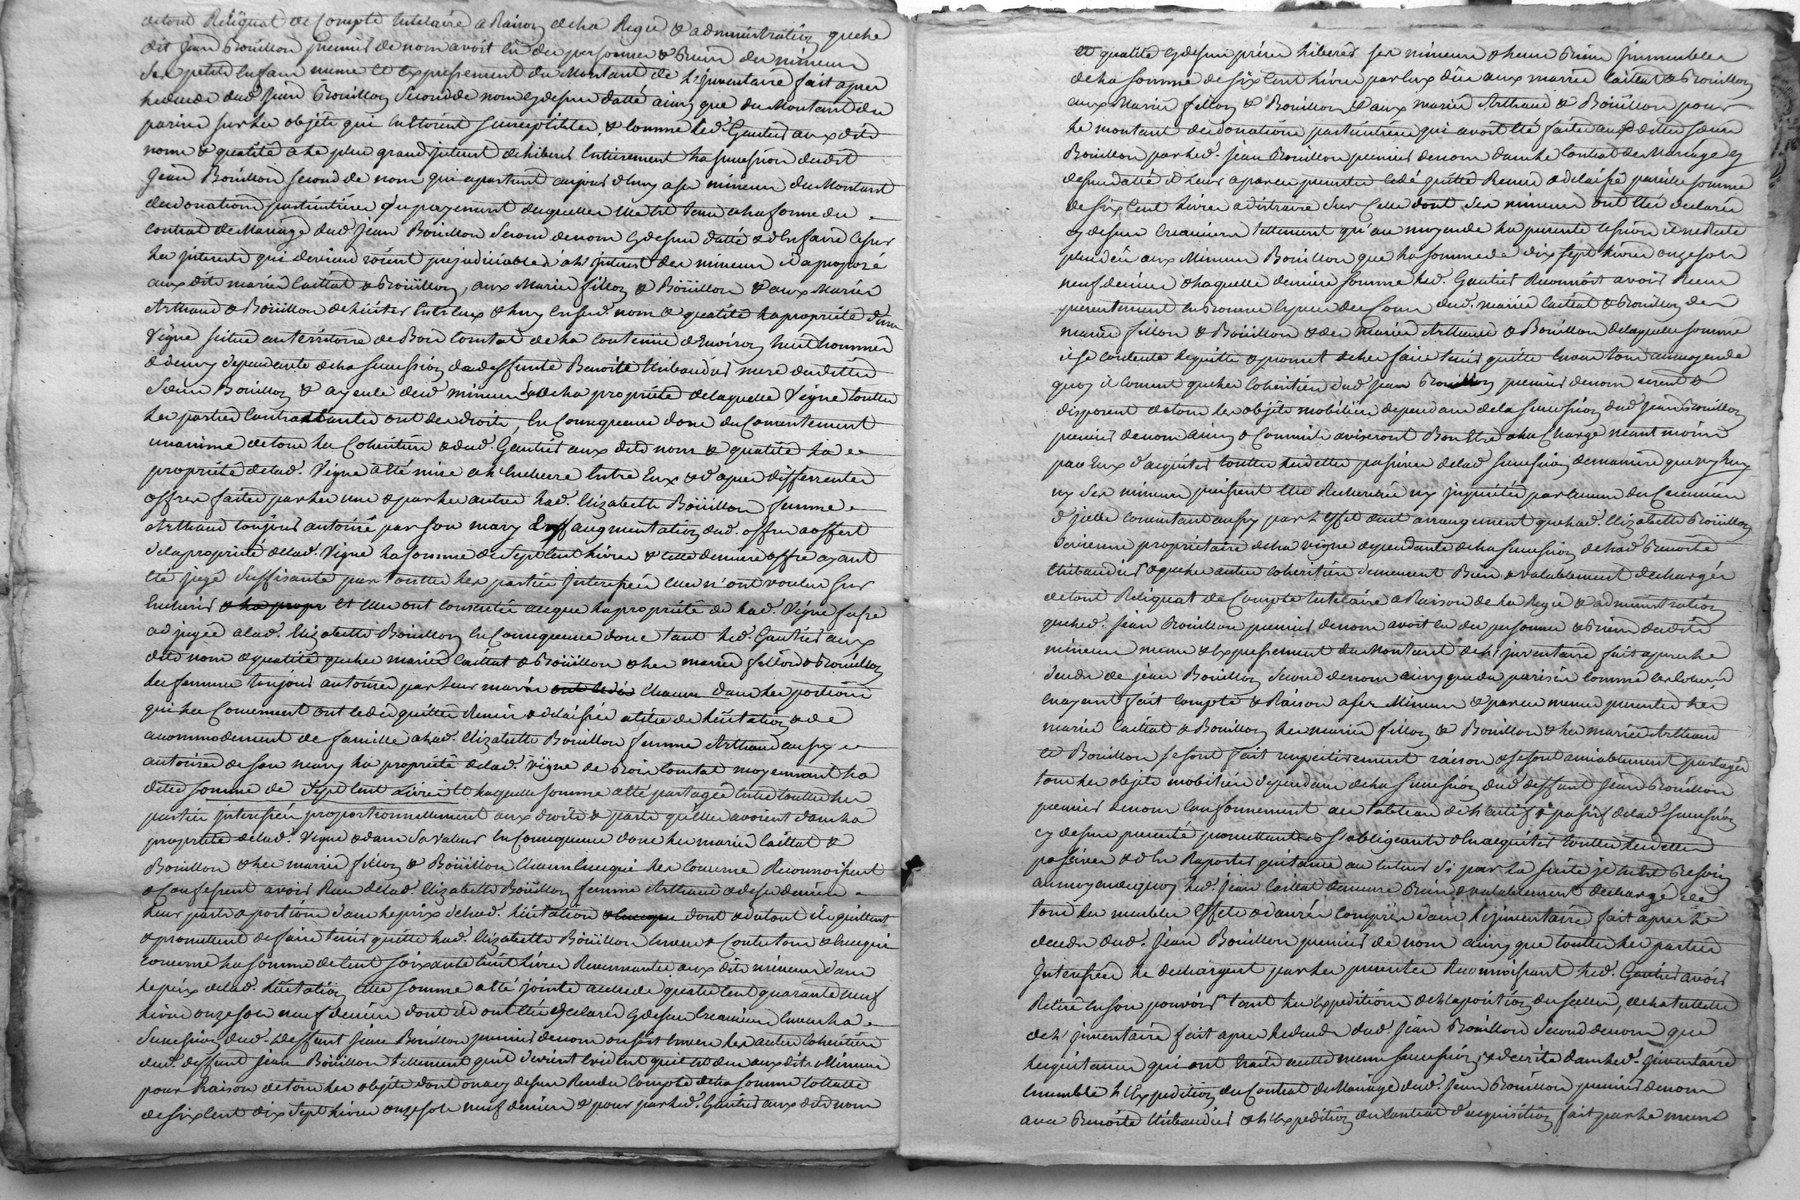 de tout Reliquat de Compte tutelaire a Raison de la Regie & administration que le
dit jean Boüillon premier de nom avoit eü des personnes & Biens des mineurs
ses petits enfans meme et expressement du Montant de l'inventaire fait apres
le deces dud. jean Boüillon second de nom cy dessus datté ainsy que du Montant du
parisis sur les objets qui en etoient susceptibles, & comme led. Gautier aux dits
noms & qualité a le plus grand interet de liberer entierement la succession dudit
jean Boüillon second de nom qui apartient aujourd'huy a ses mineurs du Montant
des donations particulieres au payement desquelles elle est tenue a la forme du
contrat de Mariage dud. jean Boüillon second de nom cy dessus datté & d'en faire cesser
les interets qui deviendroient prejudiciables a l'interet des mineurs il a proposé
aux dits mariés Caillat & Boüillon, aux Mariés fillon & Boüillon & aux Mariés
Arthaud & Boüillon de liciter entr'eux & luy en sesd. noms & qualité la propriété d'une
Vigne située au territoire de Bon Comtat de la contenüe d'environ huit hommées
& demy dependante de la succession de deffunte Benoite thibaudier mere desdittes
sœurs Boüillon & ayeule desd. mineurs sur la propriété de laquelle Vigne touttes
les parties contractantes ont des droits, en consequence donc du consentement
unanime de tous les Coheritiers & dud. Gautier aux dits noms & qualité la
propriété de lad. Vigne a été mise a l'enchere entre eux & d'apres differentes
offres faites par les uns & par les autres lad. Elizabette Boüillon femme
Arthaud toujours autorisée par son mary en augmentation desd. offres a offert
de la propriété de lad. Vigne la somme de sept cent livres & cette derniere offre ayant
été jugée suffisante par touttes les parties interessées elles n'ont voulu sur
encherir & la propr et elles ont consenties a ce que la propriété de lad. Vigne fusse
adjugée a lad. Elizabette Boüillon en consequence donc tant led. Gautier aux
dits noms & qualité que les mariés Caillat & Boüillon & les mariés fillon & Boüillon
les femmes toujours autorisées par leurs maris ont cedés chacun dans les portions
qui les Concernent ont cedés quittés Remis & delaissés a titre de licitation & de
accommodement de famille a lad. Elizabette Boüillon femme Arthaud aussy
autorisée de son mary la propriété de lad. Vigne de Bon Comtat moyennant la
ditte somme de Sept cent Livres et laquelle somme a été partagée entre touttes les
parties interessées proportionnellement aux droits & parts qu'elles avoient dans la
propriété de lad. Vigne & dans sa valeur en consequence donc les mariés Caillat &
Boüillon & les mariés fillon & Boüillon chacun en ce qui les concerne Reconnoissent
& Confessent avoir Reçu de lad. Elizabette Boüillon femme Arthaud & de ses deniers
leurs parts & portions dans le prix de lad. licitation & en ce que dont & du tout ils quittent
& promettent de faire tenir quitte lad. Elizabette Boüillon envers & Contre tous & en ce qui
concerne la somme de cent soixante huit livres Revenantes aux dits mineurs dans
le prix de lad. licitation cette somme a été jointe a celle de quatre cent quarante neuf
livres onze sols neuf deniers dont ils ont été declarés cy dessus creanciers envers la
succession dud. deffunt jean Boüillon premier de nom ou soit envers les autres coheritiers
dud. deffunt jean Boüillon tellement qu'il devient evident qu'il est dus aux dits Mineurs
pour Raison de tous les objets dont on a cy dessus Rendu Compte de la somme totalle
de six cent dix sept livres onze sols neuf deniers & pour par led. Gautier aux dits noms
et qualité cy dessus prises liberer ses mineurs & leurs Biens immeubles
de la somme de six cent livres par eux düe aux mariés Caillat & Boüillon
aux Mariés fillon & Boüillon & aux mariés Arthaud & Boüillon pour
le montant des donations particulieres qui avoit été faites aux dittes sœurs
Boüillon par led. jean Boüillon premier de nom dans le Contrat de Mariage cy
dessus datté il leurs a par ces presentes cedé quitté Remis & delaissé pareille somme
de six cent livres a distraire sur celle dont ses mineurs ont étés declarés
cy dessus creanciers tellement qu'au moyen de la presente cession il ne Reste
plus dû aux Mineurs Boüillon que la somme de dix sept livres onze sols
neuf deniers & laquelle derniere somme led. Gautier Reconnoit avoir Reçu
presentement en bonnes especes de Cour desd. mariés Caillat & Boüillon des
mariés fillon & Boüillon & des Mariés Arthaud & Boüillon de laquelle somme
il se contente les quitte & promet de les faire tenir quitte envers tous au moyen de
quoy il consent que les Coheritiers dud. jean Boüillon premier de nom usent &
disposent de tous les objets mobiliers dependans de la succession dud. jean Boüillon
premier de nom ainsy & Comme ils aviseront Bon être a la Charge neantmoins
par Eux d'acquitter touttes les dettes passives de lad. succession de maniere que ny luy
ny ses mineurs puissent être Recherchés ny inquietés par aucuns des Creanciers
d'icelle consentant aussy par l'effet dud. arrangement que lad. Elizabette Boüillon
devienne propriétaire de la vigne dependante de la succession de lad. Benoite
thibaudier & que les autres coheritiers demeurent Bien & valablement dechargés
de tout Reliquat de Compte tutelaire a Raison de la Regie & administration
que led. jean Boüillon premier de nom avoit eü des personnes & Biens desdits
mineurs meme & expressement du Montant de l'inventaire fait apres le
deces de jean Boüillon second de nom ainsy que du parisis comme en ce ayant
en ayant fait compte & Raison a ses Mineurs & par ces memes presentes les
mariés Caillat & Boüillon les mariés fillon & Boüillon & les mariés Arthaud
et Boüillon se sont fait respectivement raison & se sont amiablement partagés
tous les objets mobiliers dependans de la succession dud. deffunt jean Boüillon
premier de nom conformement au tableau de l'actif & passif de lad. succession
cy dessus presenté promettants & s'obligeants d'en acquitter touttes les dettes
passives & d'en Raporter quitance au tuteur si par la suite il en est Besoin
au moyen de quoy led. jean Caillat demeure Bien & valablement dechargé de
tous les meubles effets & danrées compris dans l'inventaire fait apres le
deces dud. jean Boüillon premier de nom ainsy que touttes les parties
interessées le dechargent par les presentes Reconnoissant led. Gautier avoir
Retiré en son pouvoir tant les expeditions de l'aposition du scellé, de la tutelle
de l'inventaire fait apres le deces dud. jean Boüillon second de nom que
les quitances qui ont trait a cette meme succession & decrite dans led. inventaire
ensemble l'Expedition du Contrat de Mariage dud. jean Boüillon premier de nom
avec Benoite thibaudier & l'Expedition du Contrat d'acquisition fait par le meme